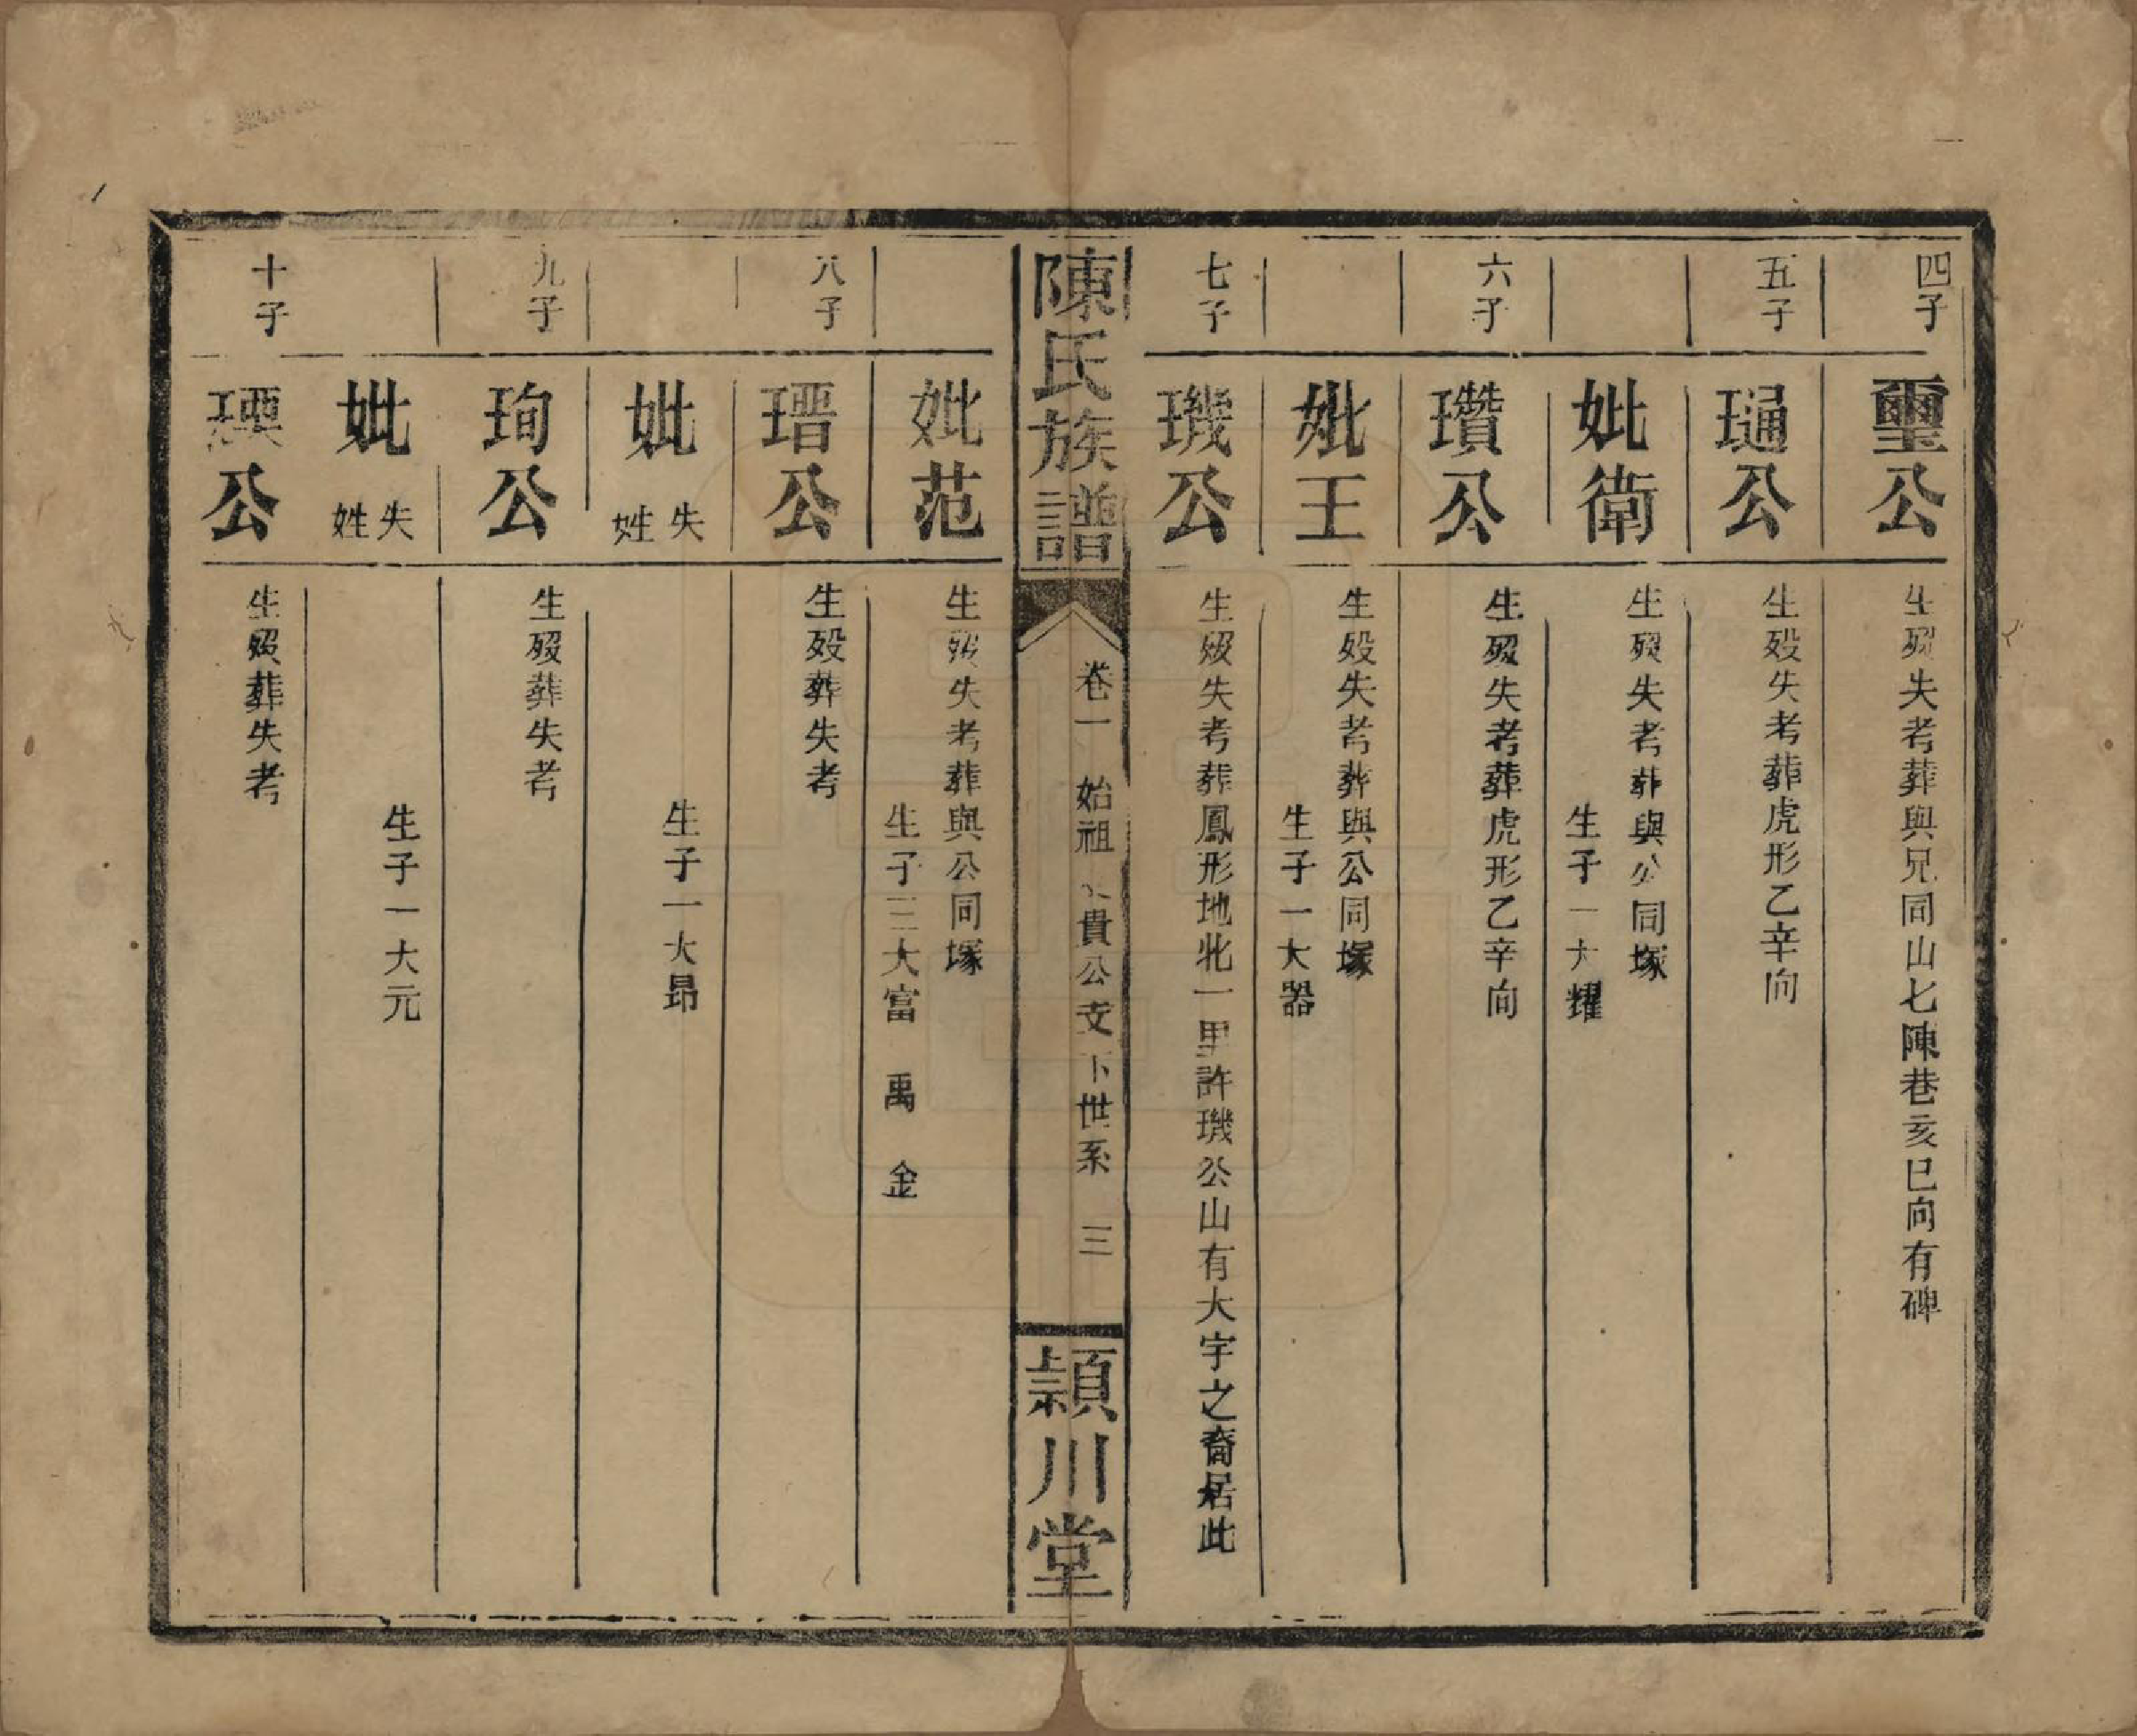 四子
璽公
生歿失考葬與兄同山七陳巷亥巳向有碑
五子
𤩊公
生歿失考葬虎形乙辛向
妣衛
生歿失考葬與公同塚
生子一大耀
六子
瓚公
生歿失考葬虎形乙辛向
妣王
生歿失考葬與公同塚
生子一大器
七子
璣公
生歿失考葬鳳形地北一里許璣公山有大宇之裔居此
陳氏族譜
卷一 始祖 貴公支下世系 三
潁川堂
妣范
生歿失考葬與公同塚
生子三大富 禹 金
八子
瑨公
生歿葬失考
妣失姓
生子一大昂
九子
珣公
生歿葬失考
妣失姓
生子一大元
十子
公
生歿葬失考